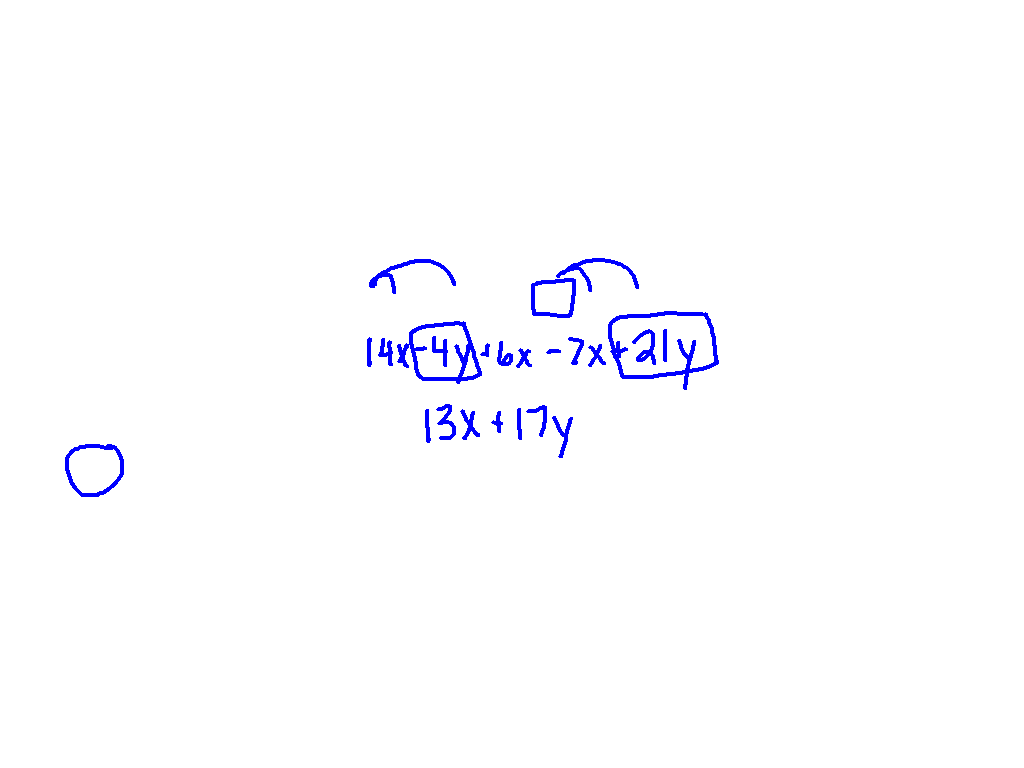 14x-4y+6x-7x+21y
13x+17y